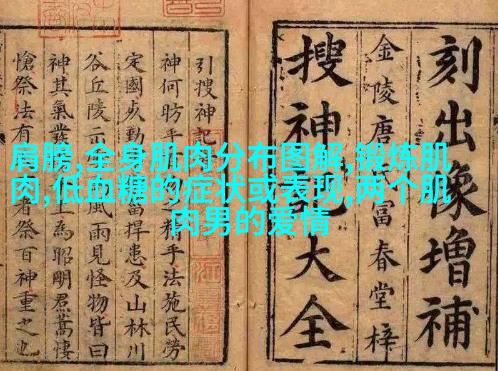 肩膀,全身肌肉分布图解,锻炼肌
肉,低血糖的症状或表现,两个肌
肉男的爱情
刻出像增補
金陵唐氏富春堂梓
搜神記大全
引搜神記
神何昉乎之精乎法施民勞
定國以勤菑捍患及山林川
谷丘陵示風雨見怪物皆曰
神其氣發上為昭明焄蒿悽
愴祭法有者祭百神重之也